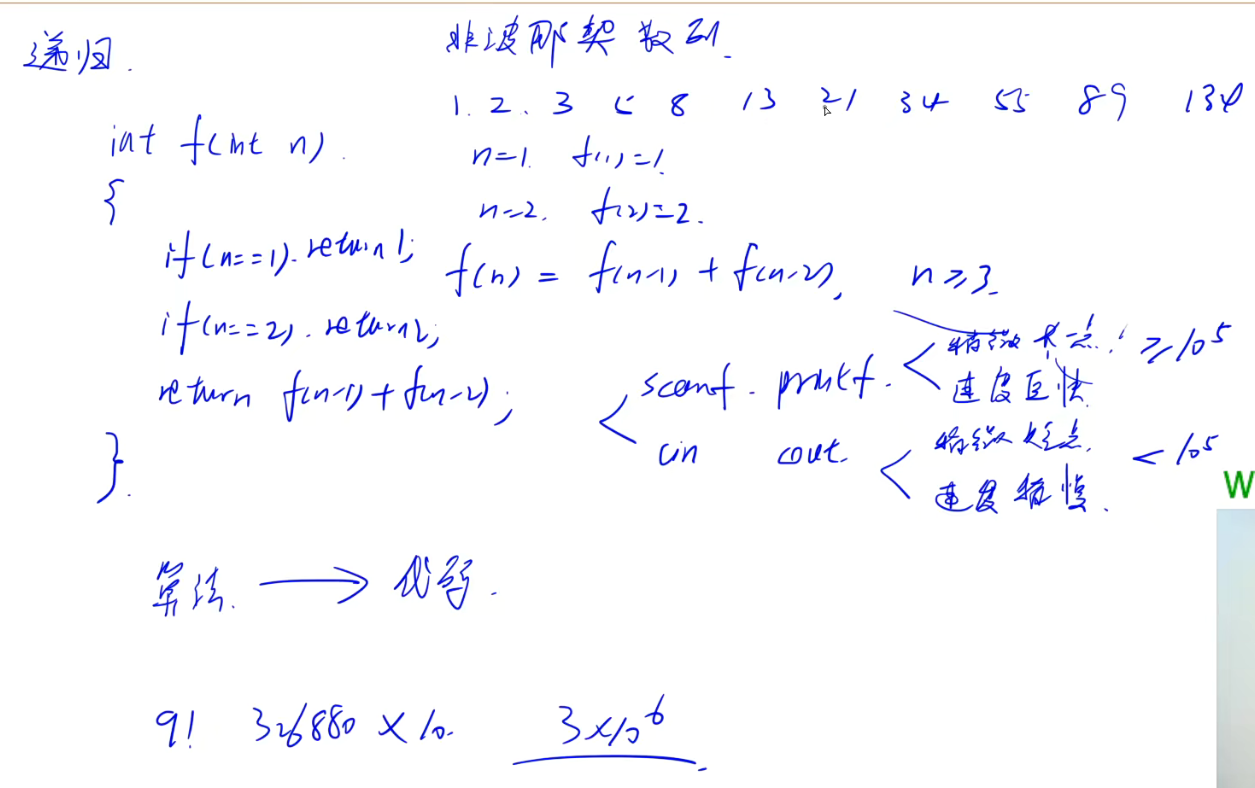 递归.
斐波那契数列.
1. 2. 3 5 8 13 21 34 55 89 134
int f(int n).
n=1. f(1)=1.
{
n=2. f(2)=2.
if(n==1). return 1;
f(n) = f(n-1) + f(n-2), n≥3.
if(n==2). return 2;
return f(n-1) + f(n-2);
scanf. printf. 稍微长一点! ≥10^5
速度巨快
cin cout. 稍微短点. <10^5
速度稍慢.
}.
算法. → 代码.
9! 326880 × 10. 3×10^6
W